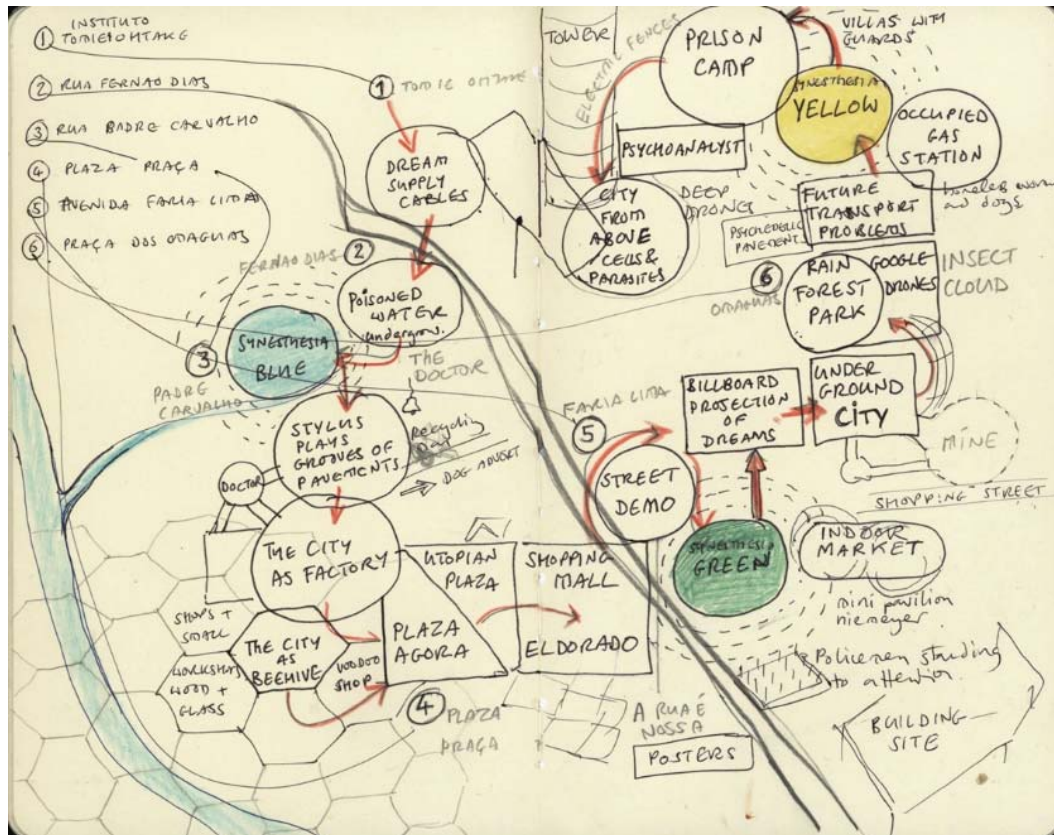 1 INSTITUTO
TOMIE OHTAKE
2 RUA FERNAO DIAS
3 RUA PADRE CARVALHO
4 PLAZA PRAÇA
5 AVENIDA FARIA LIMA
6 PRAÇA DOS OMAGUAS
1 TOMIE OHTAKE
DREAM
SUPPLY
CABLES
FERNAO DIAS 2
POISONED
WATER
undergrou.
SYNESTHESIA
BLUE
3
PADRE
CARVALHO
THE
DOCTOR
STYLUS
PLAYS
GROOVES OF
PAVEMENTS
Recycling
DOG
DOCTOR
THE CITY
AS FACTORY
SHOPS +
SMALL
WORKSHOPS
WOOD +
GLASS
THE CITY
AS
BEEHIVE
VOODOO
SHOP
UTOPIAN
PLAZA
PLAZA
AGORA
4 PLAZA
PRAÇA
SHOPPING
MALL
ELDORADO
TOWER
ELECTRIC FENCES
PRISON
CAMP
VILLAS WITH
GUARDS
SYNESTHESIA
YELLOW
OCCUPIED
GAS
STATION
homeless woman
and dogs
PSYCHOANALYST
CITY
FROM
ABOVE
CELLS &
PARASITES
DEEP
DRONES
PSYCHEDELIC
PAVEMENTS
FUTURE
TRANSPORT
PROBLEMS
6
OMAGUAS
RAIN
FOREST
PARK
GOOGLE
DRONES
INSECT
CLOUD
FARIA LIMA
5
BILLBOARD
PROJECTION
OF
DREAMS
UNDER
GROUND
CITY
MINE
STREET
DEMO
SYNESTHESIA
GREEN
SHOPPING STREET
INDOOR
MARKET
mini pavilion
niemeyer
Policemen standing
to attention
A RUA É
NOSSA
POSTERS
BUILDING
SITE